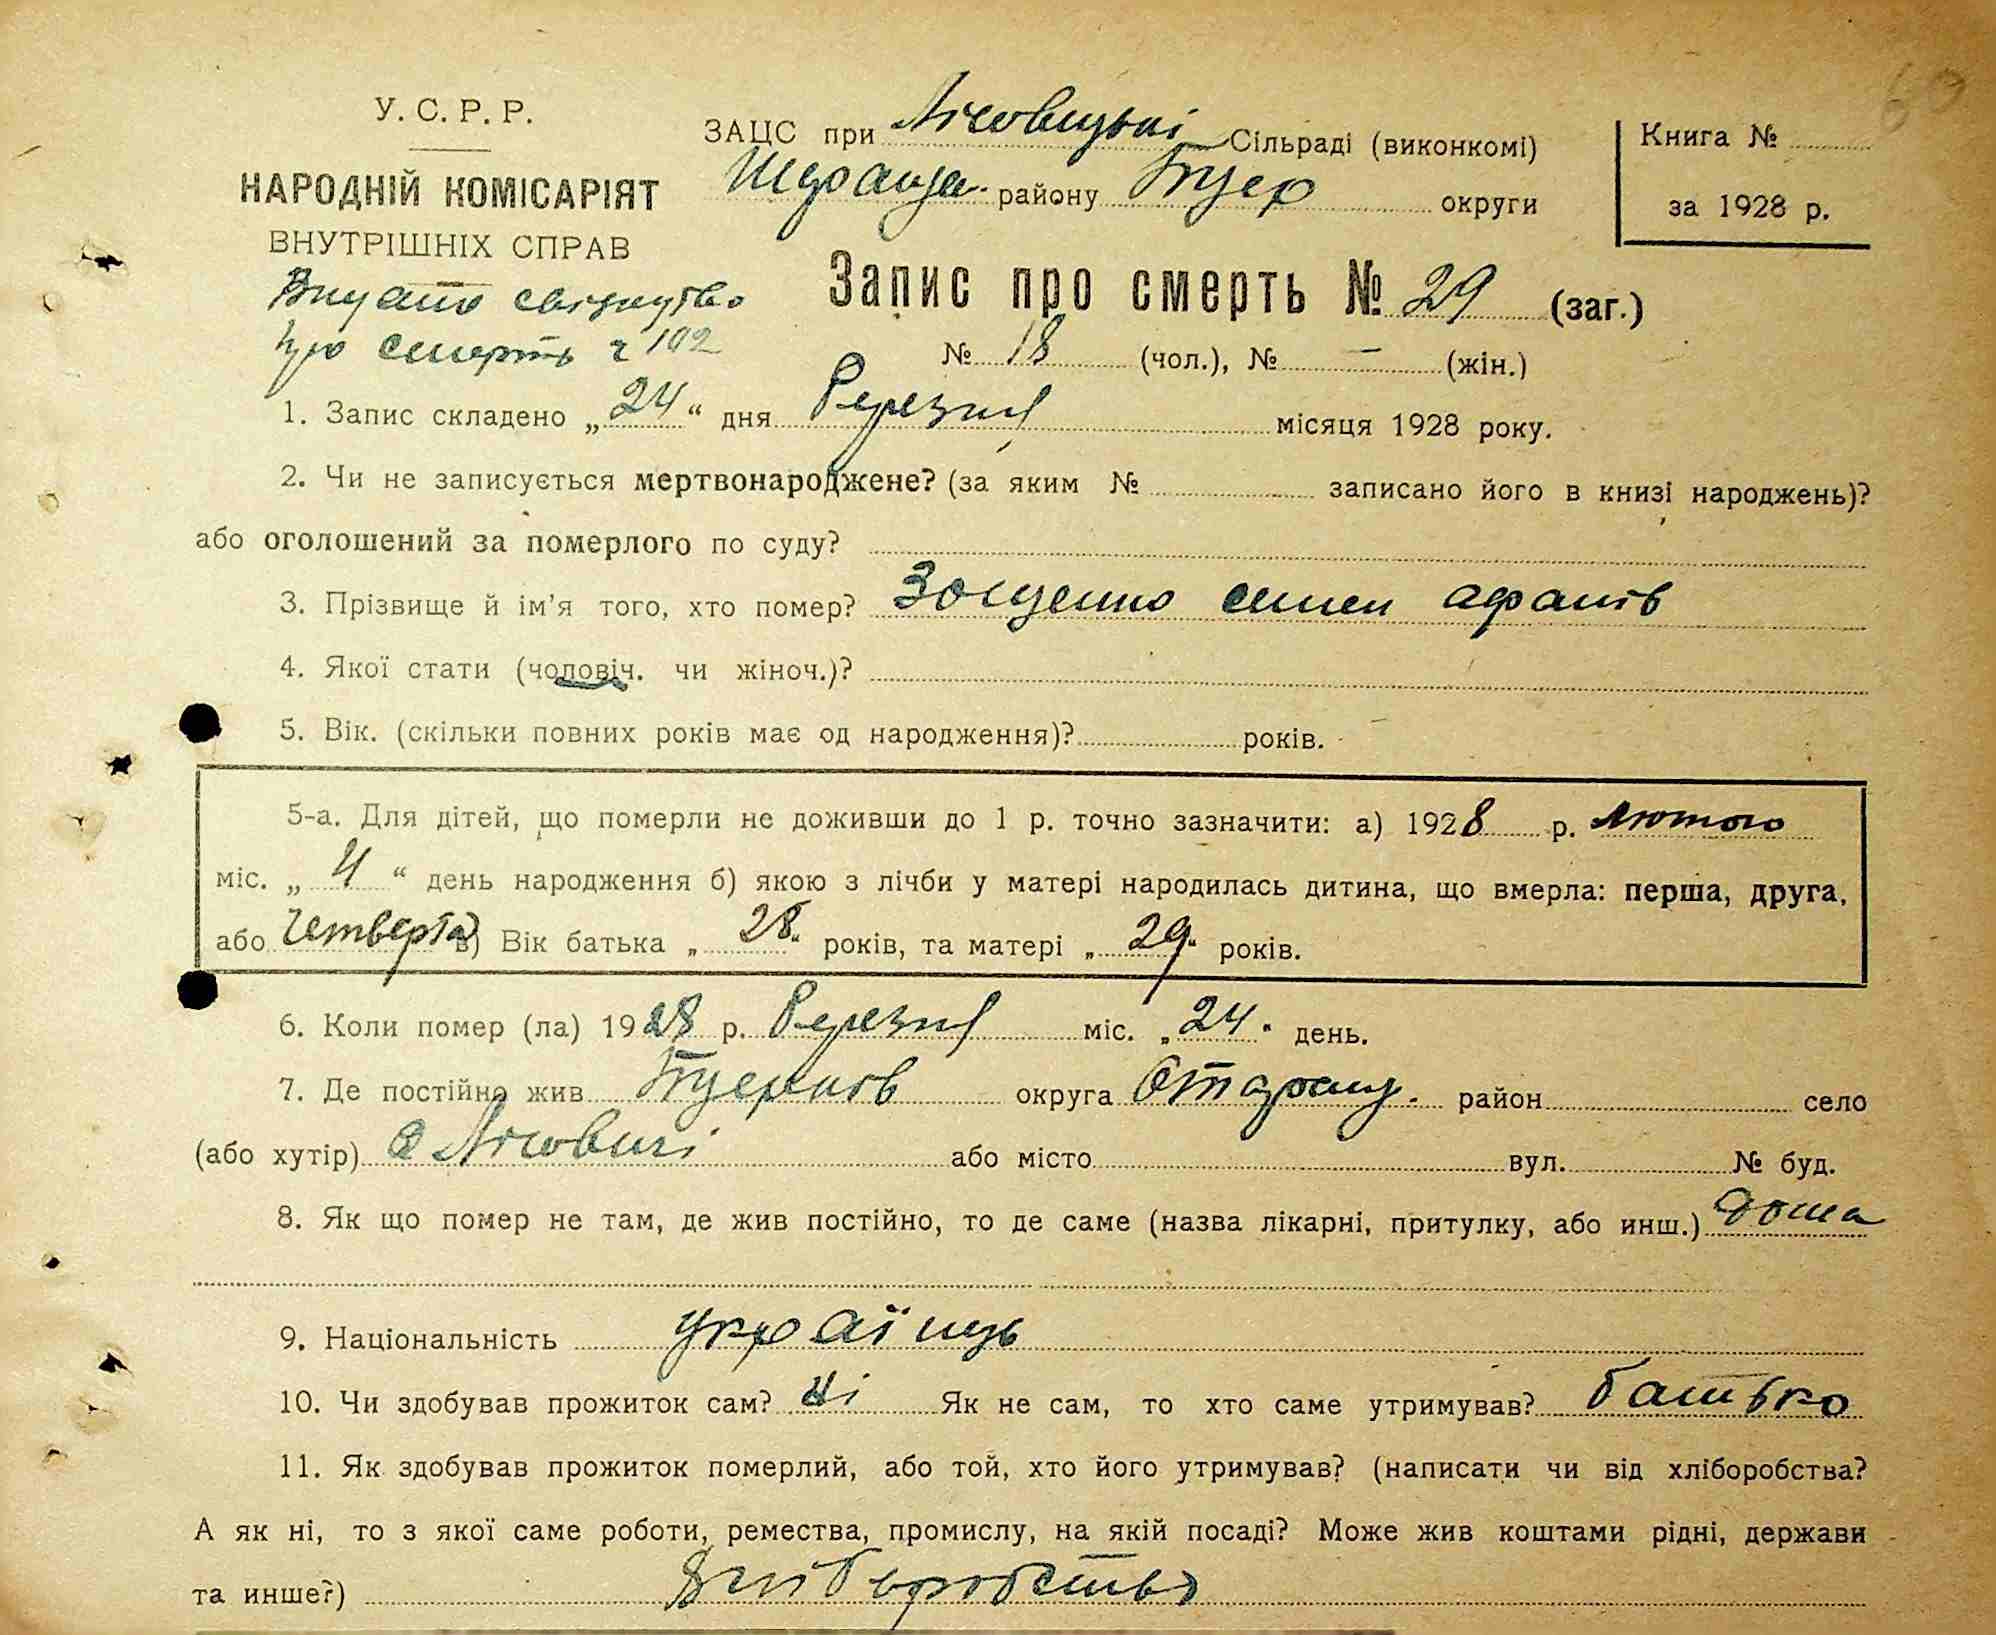 60
У. С. Р. Р.
НАРОДНІЙ КОМІСАРІЯТ
ВНУТРІШНІХ СПРАВ
Видано свідуцтво
про смерть ч 102
ЗАЦС при Лісовицькі Сільраді (виконкомі)
району округи
Книга №
за 1928 р.
Запис про смерть № 29 (заг.)
№ 18 (чол.), № — (жін.)
1. Запис складено „ 24 “ дня Березня місяця 1928 року.
2. Чи не записується мертвонароджене? (за яким № записано його в книзі народжень)?
або оголошений за померлого по суду?
3. Прізвище й ім'я того, хто помер? Зощенко семен афанів
4. Якої стати (чоловіч. чи жіноч.)?
5. Вік. (скільки повних років має од народження)? років.
5-а. Для дітей, що померли не доживши до 1 р. точно зазначити: а) 1928 р. лютого
міс. „ 4 “ день народження б) якою з лічби у матері народилась дитина, що вмерла: перша, друга,
або четверта в) Вік батька „ 28 “ років, та матері „ 29 “ років.
6. Коли помер (ла) 1928 р. Березня міс. „ 24 “ день.
7. Де постійно жив округа район село
(або хутір) с Лісовичі або місто вул. № буд.
8. Як що помер не там, де жив постійно, то де саме (назва лікарні, притулку, або инш.) дома
9. Національність українць
10. Чи здобував прожиток сам? ні Як не сам, то хто саме утримував? батько
11. Як здобував прожиток померлий, або той, хто його утримував? (написати чи від хліборобства?
А як ні, то з якої саме роботи, ремества, промислу, на якій посаді? Може жив коштами рідні, держави
та инше?) Хліборобство